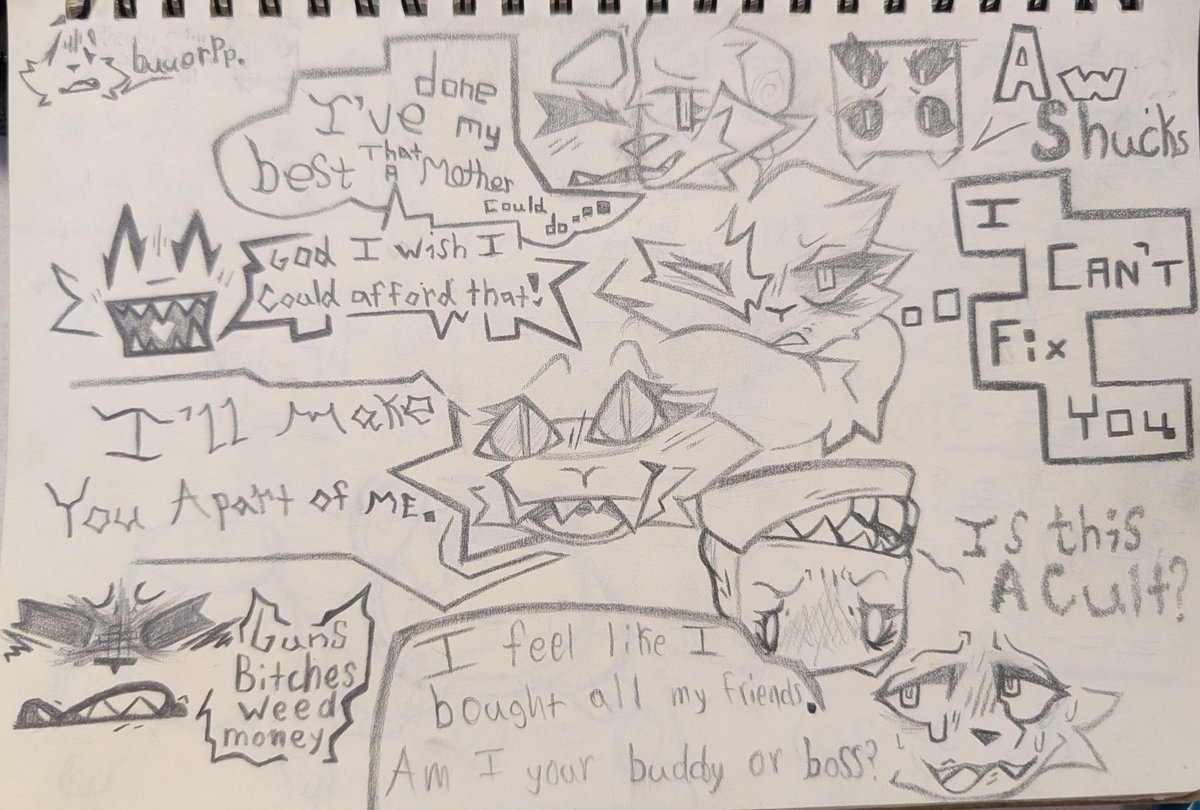 buuorpp.
done
I've my
best That A Mother
could
do....
Aw
Shucks
God I wish I
could afford that!
I
CAN'T
Fix
You
I'll Make
You Apart of ME.
Is this
A Cult?
Guns
Bitches
weed
money
I feel like I
bought all my friends.
Am I your buddy or boss?